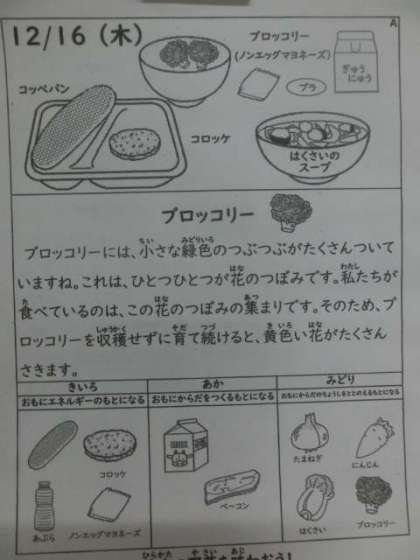 A
12/16 (木)
ブロッコリー
(ノンエッグマヨネーズ)
ぎゅう
にゅう
プラ
コッペパン
コロッケ
はくさいの
スープ
ブロッコリー
ブロッコリーには、小さな緑色のつぶつぶがたくさんついて
いますね。これは、ひとつひとつが花のつぼみです。私たちが
食べているのは、この花のつぼみの集まりです。そのため、ブ
ロッコリーを収穫せずに育て続けると、黄色い花がたくさん
さきます。
きいろ
おもにエネルギーのもとになる
コロッケ
あぶら
ノンエッグマヨネーズ
あか
おもにからだをつくるもとになる
ベーコン
みどり
おもにからだのちょうしをととのえるもとになる
たまねぎ
にんじん
はくさい
ブロッコリー